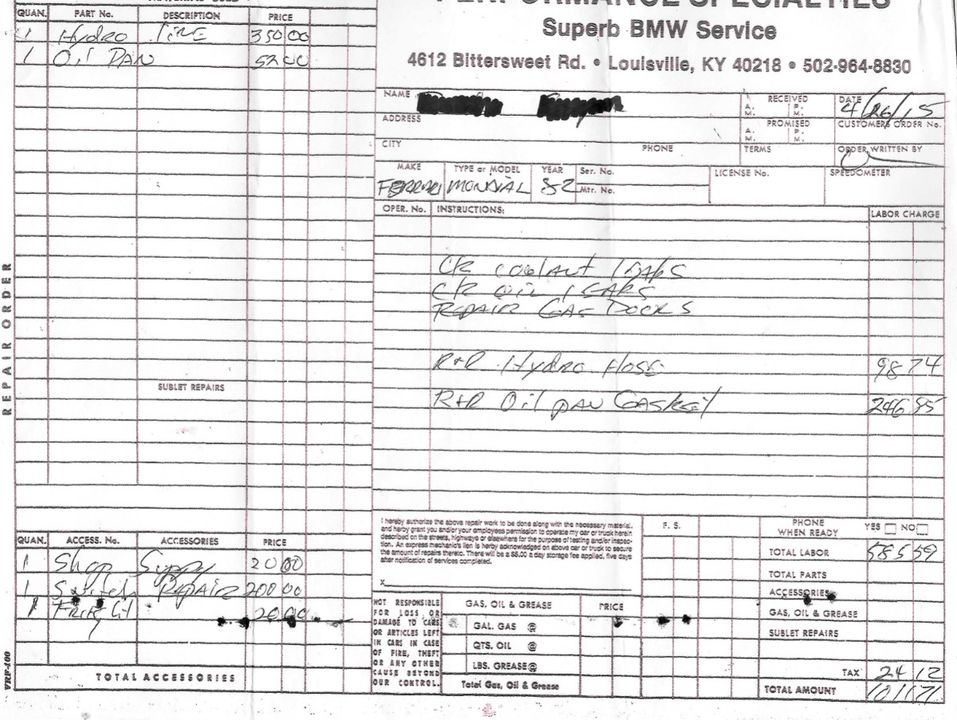 QUAN. PART No. DESCRIPTION PRICE
1 Hydro Line 350 00
1 Oil PAN 52 00
REPAIR ORDER
SUBLET REPAIRS
QUAN. ACCESS. No. ACCESSORIES PRICE
1 Shop Supply 20 00
1 Switch Repair 200 00
1 20 00
TOTAL ACCESSORIES
VRF-400
PERFORMANCE SPECIALTIES
Superb BMW Service
4612 Bittersweet Rd. • Louisville, KY 40218 • 502-964-8830
NAME
RECEIVED A. M. P. M.
DATE 4/26/15
ADDRESS
PROMISED A. M. P. M.
CUSTOMERS ORDER No.
CITY PHONE TERMS ORDER WRITTEN BY
MAKE TYPE or MODEL YEAR Ser. No. LICENSE No. SPEEDOMETER
FERRARI MONDIAL 82 Mtr. No.
OPER. No. INSTRUCTIONS: LABOR CHARGE
CK COOLANT LEAKS
CK OIL LEAKS
REPAIR GAS DOCKS
R+R Hydro Hose 98 74
R+R Oil PAN Gasket 246 95
I hereby authorize the above repair work to be done along with the necessary material, and herby grant you and/or your employees permission to operate my car or truck herein described on the streets, highways or elsewhere for the purpose of testing and/or inspection. An express mechanic's lien is herby acknowledged on above car or truck to secure the amount of repairs thereto. There will be a $5.00 a day storage fee applied, five days after notification of services completed.
X
F. S.
PHONE WHEN READY YES NO
TOTAL LABOR 585 59
TOTAL PARTS
ACCESSORIES
GAS, OIL & GREASE
SUBLET REPAIRS
TAX 24 12
TOTAL AMOUNT 1011 71
NOT RESPONSIBLE FOR LOSS OR DAMAGE TO CARS OR ARTICLES LEFT IN CARS IN CASE OF FIRE, THEFT OR ANY OTHER CAUSE BEYOND OUR CONTROL.
GAS, OIL & GREASE PRICE
GAL. GAS @
QTS. OIL @
LBS. GREASE @
Total Gas, Oil & Grease